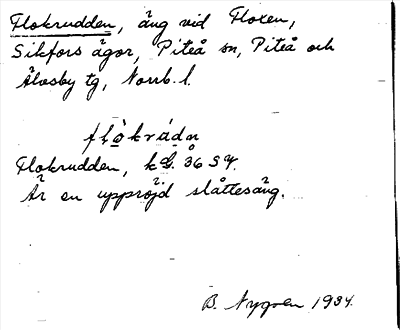 Flokrudden, äng vid Floxen,
Sikfors ägor, Piteå sn, Piteå och
Älvsby tg, Norrb. l.
flòkrádn
Flokrudden, k 36 SV.
Är en uppröjd slåttesäng.
B. Nygren 1934.